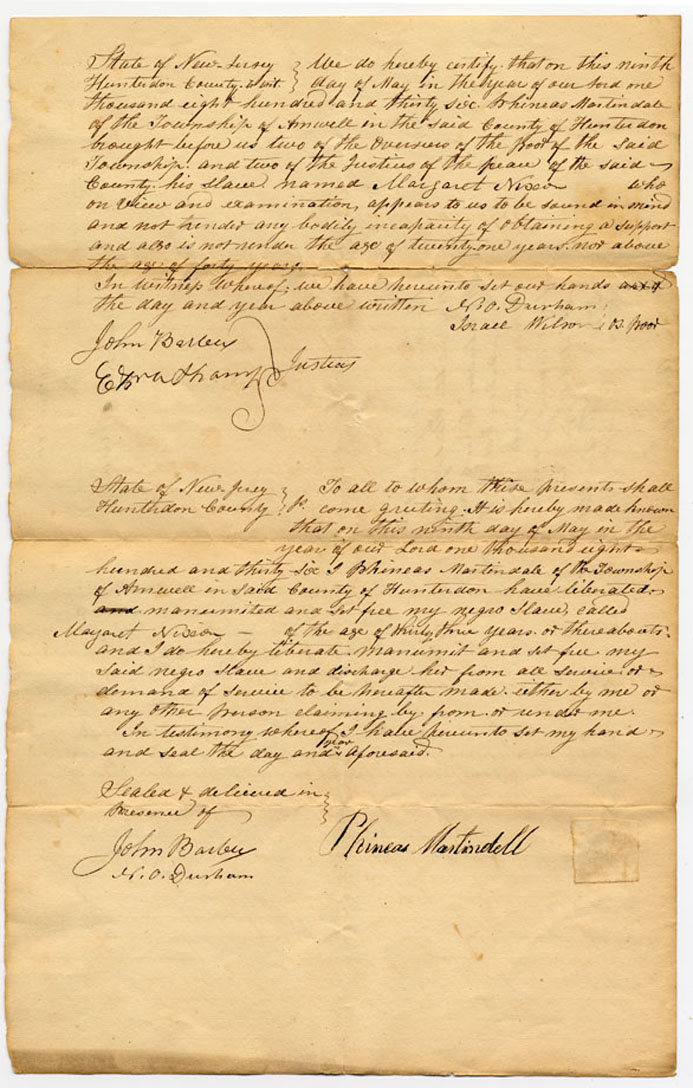 State of New-Jersey } We do hereby certify that on this ninth
Hunterdon County to wit } day of May in the year of our lord one
thousand eight hundred and thirty six. Phineas Martindale
of the Township of Amwell in the said County of Hunterdon
brought before us two of the Overseers of the Poor of the said
Township. and two of the Justices of the peace of the said
County. his slave named Margaret Nixon who
on view and examination, appears to us to be sound in mind
and not under any bodily incapacity of obtaining a support
and also is not under the age of twenty one years. nor above
the age of forty years.
In witness whereof. we have hereunto set our hands and
the day and year above written N. O. Durham
Israel Wilson } Os. poor
John Barber
Justices
State of New-Jersey } To all to whom these presents shall
Hunterdon County } come greeting. It is hereby made known
that on this ninth day of May in the
year of our Lord one thousand eight
hundred and thirty six I Phineas Martindale of the Township
of Amwell in said County of Hunterdon have liberated
and manumited and set free my negro Slave, called
Margaret Nixon — of the age of thirty three years. or thereabouts.
and I do hereby liberate manumit and set free my
said negro slave and discharge her from all service or
demand of service to be hereafter made. either by me or
any other person claiming by from. or under me.
In testimony whereof I have hereunto set my hand
and seal the day and year aforesaid.
Sealed & delivered in }
Presence of
John Barber
Phineas Martindell
N. O. Durham